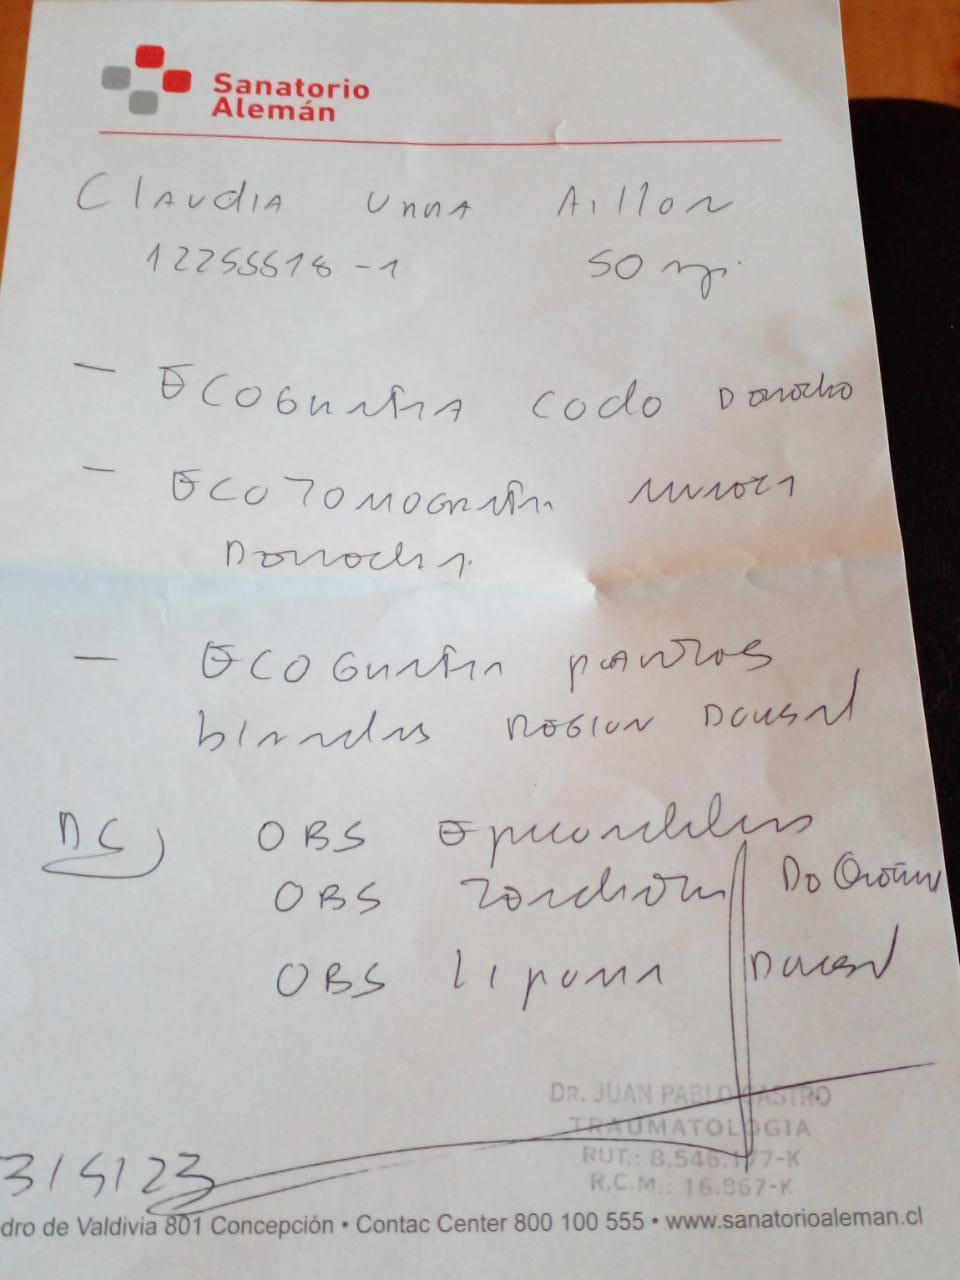 Sanatorio
Alemán
Claudia Unna Aillon
50
- Ecografía codo Derecho
- Ecotomografía muñeca
Derecha
- Ecografía partes
blandas region Dorsal
OBS Epicondilitis
OBS Tendinitis De Quervain
OBS Lipoma Dorsal
DR. JUAN PABLO CASTRO
TRAUMATOLOGIA
RUT.: 8.546.177-K
R.C.M.: 16.867-K
dro de Valdivia 801 Concepción • Contac Center 800 100 555 • www.sanatorioaleman.cl